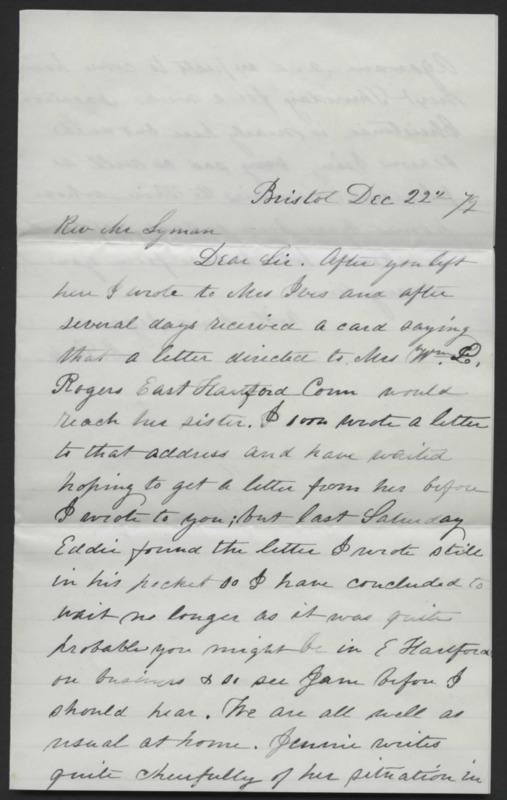 Bristol Dec 22nd /72
Rev Mr Lyman
Dear Sir. After you left
here I wrote to Mrs Ives and after
several days received a card saying
that a letter directed to Mrs Wm L.
Rogers East Hartford Conn would
reach her sister. I soon wrote a letter
to that address and have waited
hoping to get a letter from her before
I wrote to you; but last Saturday
Eddie found the letter I wrote still
in his pocket so I have concluded to
wait no longer as it was quite
probable you might be in E Hartford
on business & so see Jane before I
should hear. We are all well as
usual at home. Jennie writes
quite cheerfully of her situation in